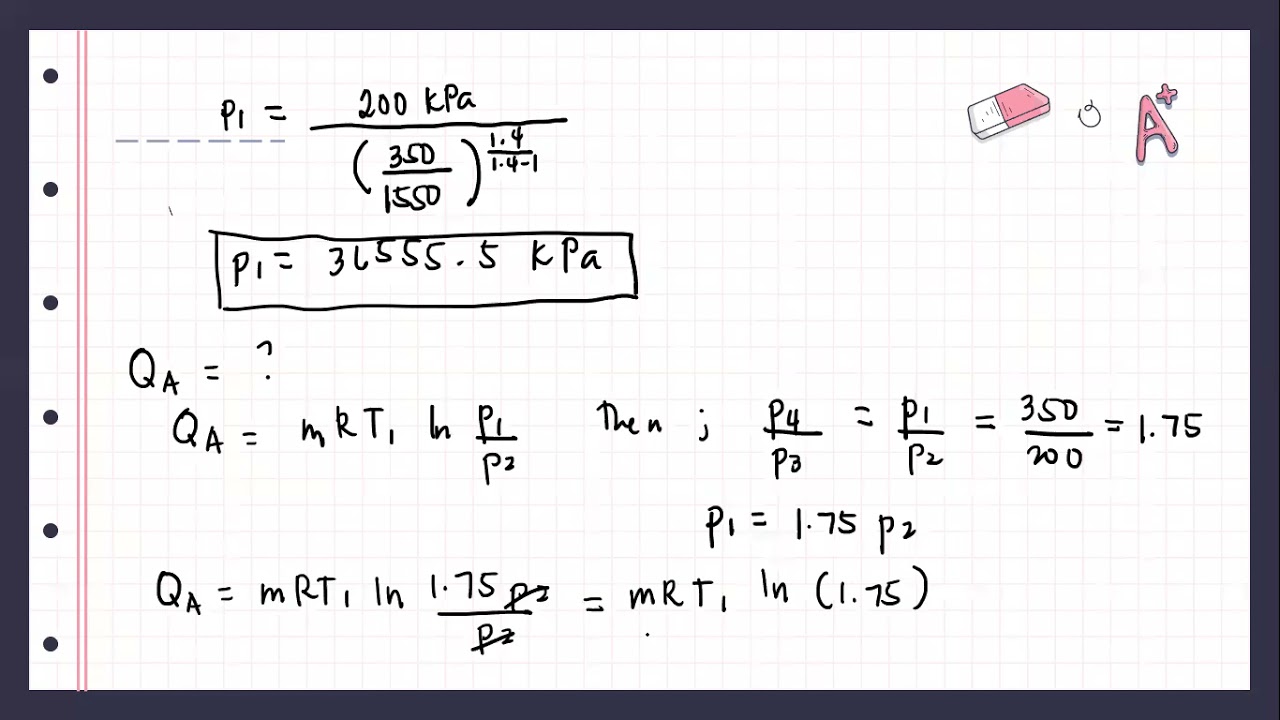 p₁ = 200 kPa / (350/1550)^(1.4/(1.4-1))
p₁ = 36555.5 kPa
Q_A = ?
Q_A = mRT₁ ln p₁/p₂ Then ; p₄/p₃ = p₁/p₂ = 350/200 = 1.75
p₁ = 1.75 p₂
Q_A = mRT₁ ln 1.75p₂/p₂ = mRT₁ ln (1.75)
A+